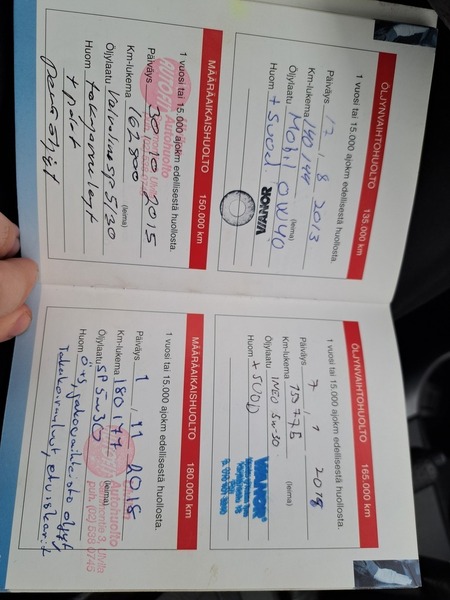 ÖLJYNVAIHTOHUOLTO 135.000 km
1 vuosi tai 15.000 ajokm edellisestä huollosta.
Päiväys 12 / 8 2013
Km-lukema 140144
(leima)
Öljylaatu Mobil 0W40
Huom + suod.
VIANOR
MÄÄRÄAIKAISHUOLTO 150.000 km
1 vuosi tai 15.000 ajokm edellisestä huollosta.
Päiväys 30 / 10 2015
Km-lukema 162800
(leima)
Öljylaatu Valvoline SP 5/30
Huom takajarru levyt
+ palat
Autohuolto
ÖLJYNVAIHTOHUOLTO 165.000 km
1 vuosi tai 15.000 ajokm edellisestä huollosta.
Päiväys 7 / 1 2018
Km-lukema 175775
(leima)
Öljylaatu INEO 5w-30
Huom + SUOD
VIANOR
MÄÄRÄAIKAISHUOLTO 180.000 km
1 vuosi tai 15.000 ajokm edellisestä huollosta.
Päiväys 1 / 11 2018
Km-lukema 180177
(leima)
Öljylaatu SP 5w30
Huom
Autohuolto
Ulvila
puh. (02) 538 0745